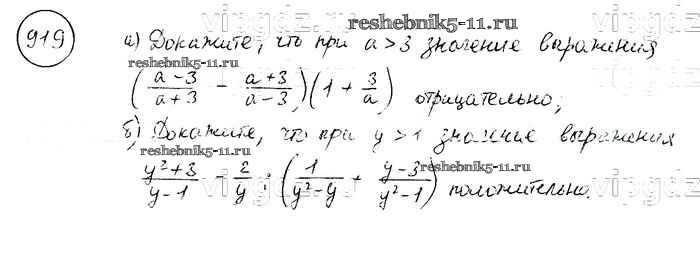 919
reshebnik5-11.ru
а) Докажите, что при a>3 значение выражения
reshebnik5-11.ru
(a-3/a+3 - a+3/a-3)(1+3/a) отрицательно;
б) Докажите, что при y>1 значение выражения
reshebnik5-11.ru
y²+3/y-1 - 2/y : (1/y²-y + y-3/y²-1) положительно.